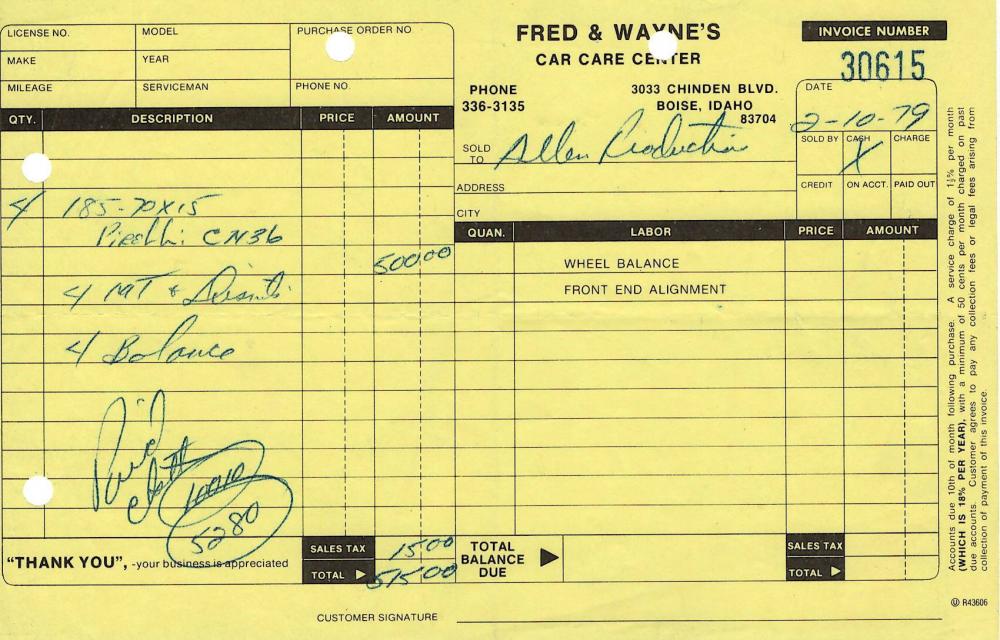 LICENSE NO. MODEL PURCHASE ORDER NO
MAKE YEAR
MILEAGE SERVICEMAN PHONE NO.
FRED & WAYNE'S
CAR CARE CENTER
PHONE
336-3135
3033 CHINDEN BLVD.
BOISE, IDAHO
83704
INVOICE NUMBER
30615
DATE
2-10-79
SOLD BY CASH CHARGE
X
CREDIT ON ACCT. PAID OUT
SOLD TO Allen Production
ADDRESS
CITY
QTY. DESCRIPTION PRICE AMOUNT
4 185-70X15
Pirelli CN36
500 00
4 MT &
4 Balance
Paid
5280
"THANK YOU", -your business is appreciated
SALES TAX 15 00
TOTAL 515 00
QUAN. LABOR PRICE AMOUNT
WHEEL BALANCE
FRONT END ALIGNMENT
TOTAL
BALANCE
DUE
SALES TAX
TOTAL
CUSTOMER SIGNATURE
Accounts due 10th of month following purchase. A service charge of 1½% per month
(WHICH IS 18% PER YEAR), with a minimum of 50 cents per month charged on past
due accounts. Customer agrees to pay any collection fees or legal fees arising from
collection of payment of this invoice.
R43606